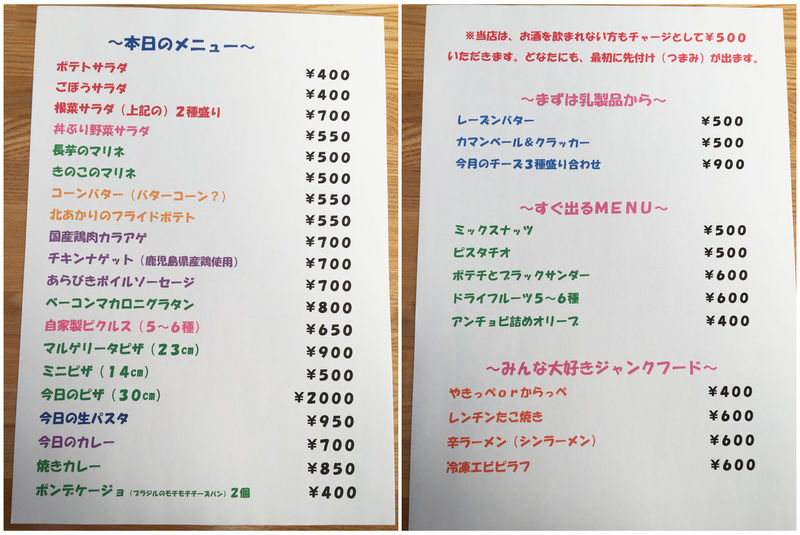 ～本日のメニュー～
ポテトサラダ ￥400
ごぼうサラダ ￥400
根菜サラダ（上記の）２種盛り ￥700
丼ぶり野菜サラダ ￥550
長芋のマリネ ￥500
きのこのマリネ ￥500
コーンバター（バターコーン？） ￥550
北あかりのフライドポテト ￥550
国産鶏肉カラアゲ ￥700
チキンナゲット（鹿児島県産鶏使用） ￥700
あらびきボイルソーセージ ￥700
ベーコンマカロニグラタン ￥800
自家製ピクルス（５～６種） ￥650
マルゲリータピザ（２３㎝） ￥900
ミニピザ（１４㎝） ￥500
今日のピザ（３０㎝） ￥2000
今日の生パスタ ￥950
今日のカレー ￥700
焼きカレー ￥850
ポンデケージョ（ブラジルのモチモチチーズパン）２個 ￥400
※当店は、お酒を飲まれない方もチャージとして￥５００
いただきます。どなたにも、最初に先付け（つまみ）が出ます。
～まずは乳製品から～
レーズンバター ￥500
カマンベール＆クラッカー ￥500
今月のチーズ３種盛り合わせ ￥900
～すぐ出るＭＥＮＵ～
ミックスナッツ ￥500
ピスタチオ ￥500
ポテチとブラックサンダー ￥600
ドライフルーツ５～６種 ￥600
アンチョビ詰めオリーブ ￥400
～みんな大好きジャンクフード～
やきっぺｏｒからっぺ ￥400
レンチンたこ焼き ￥600
辛ラーメン（シンラーメン） ￥600
冷凍エビピラフ ￥600